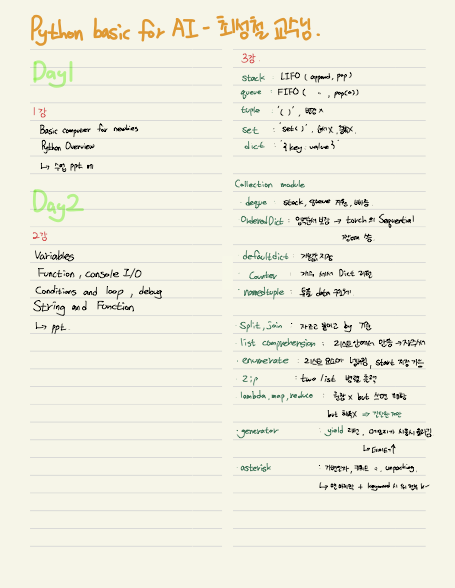 Python basic for AI - 최성철 교수님.
Day1
1강
Basic computer for newbies
Python Overview
↳ 수업 ppt
Day2
2강
Variables
Function, console I/O
Conditions and loop, debug
String and Function
↳ ppt.
3강
stack : LIFO ( append, pop )
queue : FIFO ( 〃 , pop(0) )
tuple : '( )', 변경 x
set : 'set( )',
dict : '{key : value}'
Collection module
deque : stack, queue 지원,
OrderedDict : → torch의 Sequential
defaultdict : 기본값 지정
Counter : 개수 세서 Dict 리턴
namedtuple : 튜플 data 구조체
Split, join : 자르고 붙이고 by 기준
list comprehension : 리스트 안에서 만듦 →
enumerate : 리스트 요소에 start 지정 가능
zip : two list 병렬 출력
lambda, map, reduce : 권장 x but
but 써도 x ⇒
generator : yield 리턴,
↳ ↑
asterisk : 가변인자, 키워드 〃, unpacking.
↳ + keyword 시